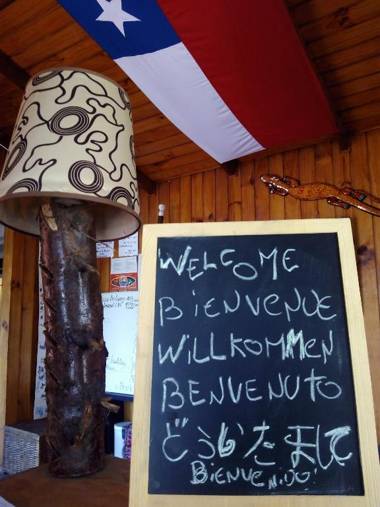 WELCOME
BIENVENUE
WILLKOMMEN
BENVENUTO
どういたまして
BIENVENIDO!